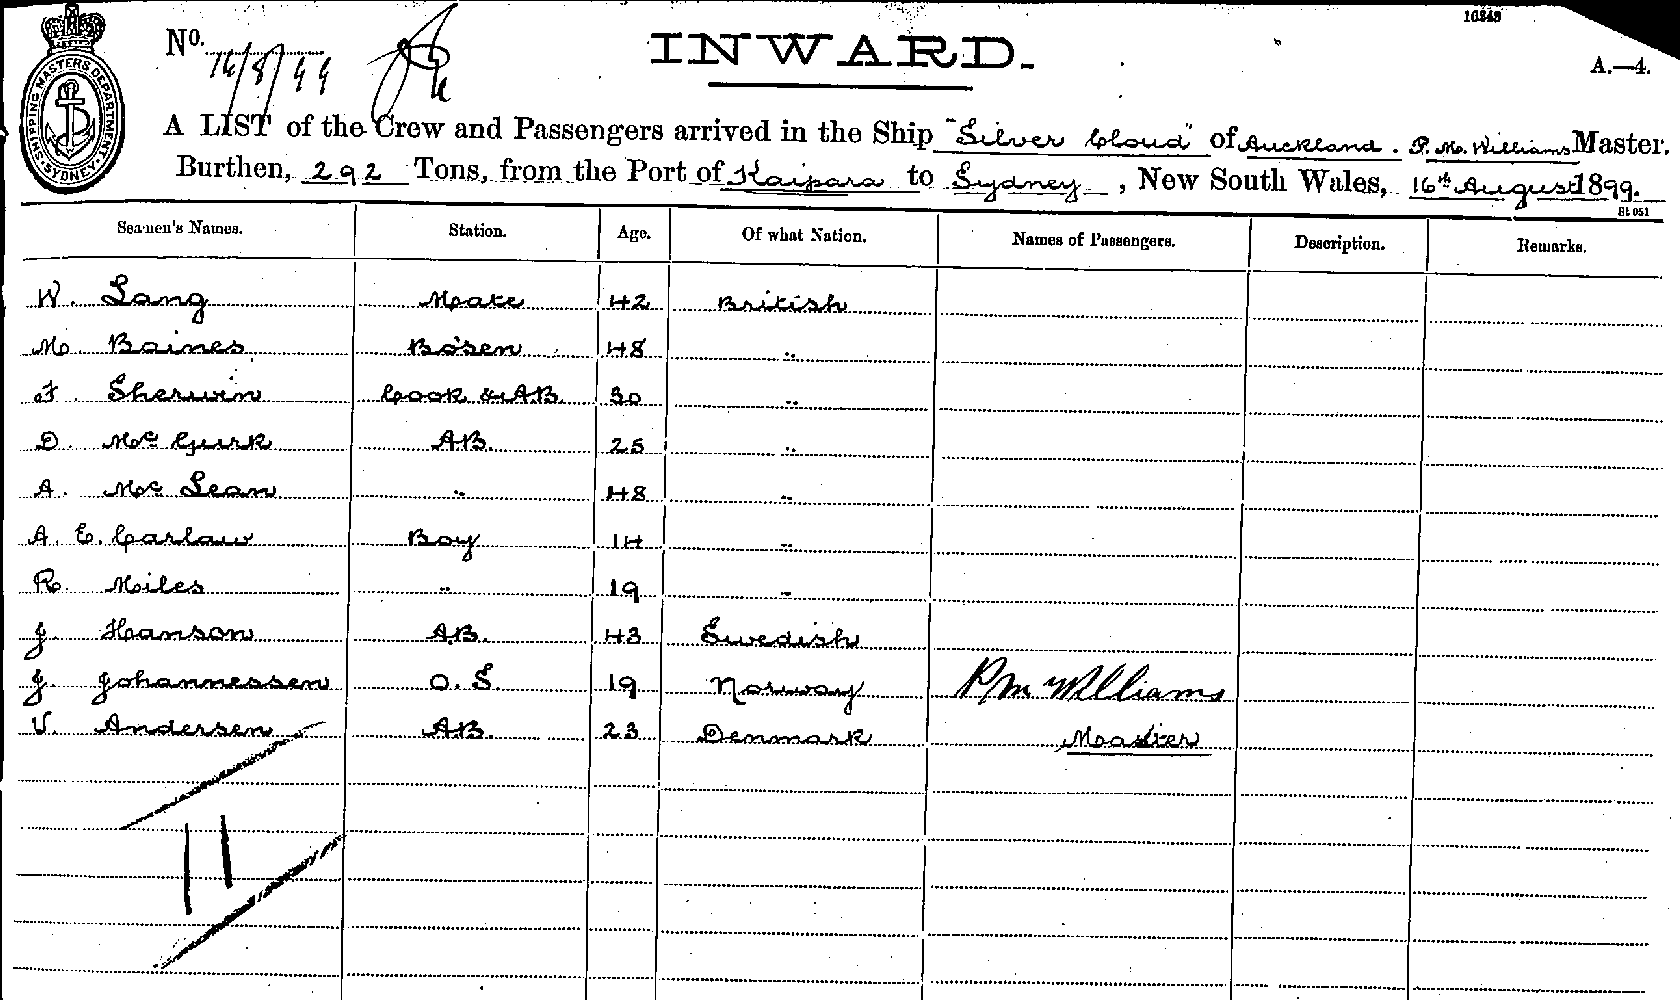 10249
No. 16/8/99
INWARD.
A.—4.
SHIPPING MASTERS DEPARTMENT SYDNEY
A LIST of the Crew and Passengers arrived in the Ship "Silver Cloud" of Auckland. P. M. Williams Master.
Burthen, 292 Tons, from the Port of Kaipara to Sydney, New South Wales, 16th August 1899.
St 051
Seamen's Names. Station. Age. Of what Nation. Names of Passengers. Description. Remarks.
W. Lang Mate 42 British
M. Baines Bosen 48 "
F. Sherwin Cook & AB. 30 "
D. Mc Gurk AB. 25 "
A. Mc Lean " 48 "
A. E. Carlaw Boy 14 "
R. Miles " 19 "
J. Hanson AB. 43 Swedish
J. Johannessen O. S. 19 Norway P M Williams
V. Andersen AB. 23 Denmark Master
11